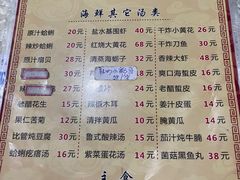 海鲜其它汤类
原汁蛤蜊 20元
盐水基围虾 40元
干炸小黄花 26元
辣炒蛤蜊 20元
红烧大黄花 68元
干炸刀鱼 30元
原汁扇贝 28元
清蒸海蛎子 32元
香辣大虾 60元
爽口海蜇皮 18元
老醋蜇皮 18元
老醋花生 15元
辣根木耳 18元
姜汁皮蛋 14元
果仁菠菊 12元
清拌黄瓜 10元
腌黄瓜 14元
比管炖豆腐 30元
鲁式酸辣汤 15元
茄汁炖牛腩 46元
蛤蜊疙瘩汤 16元
紫菜花子汤 14元
菌菇黑鱼丸 38元
主食